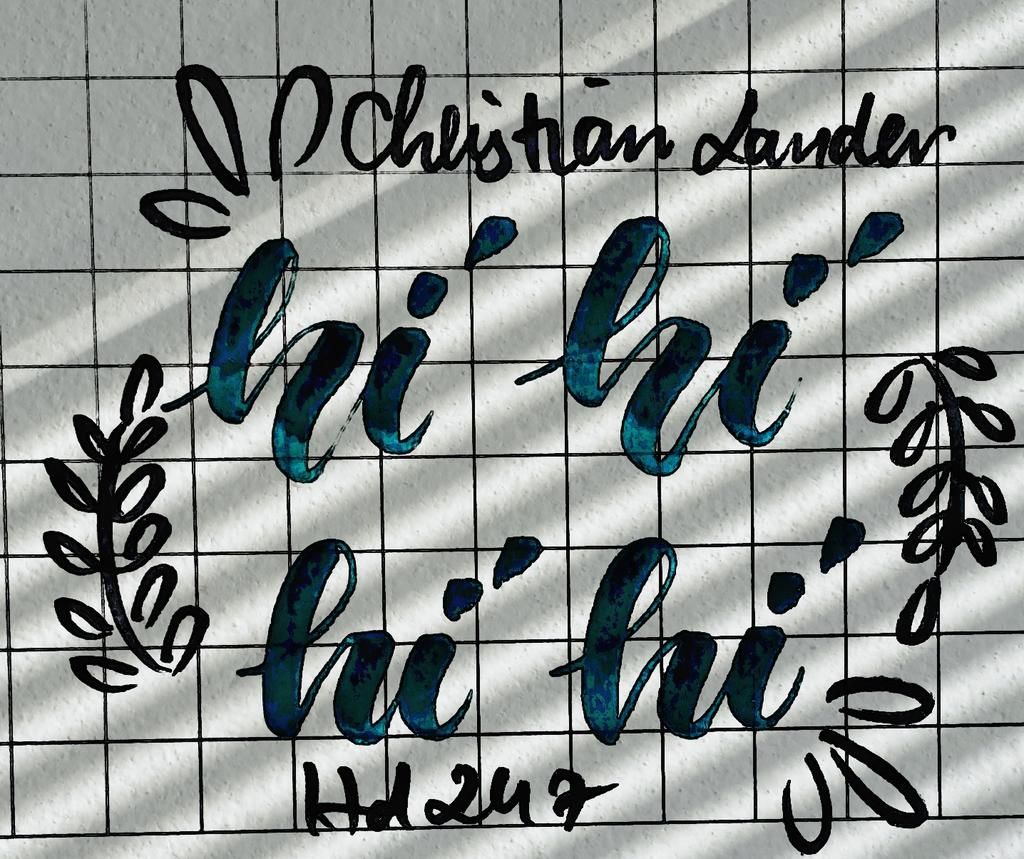 Christian Lander
hi' hi'
hi' hi'
Hd 247